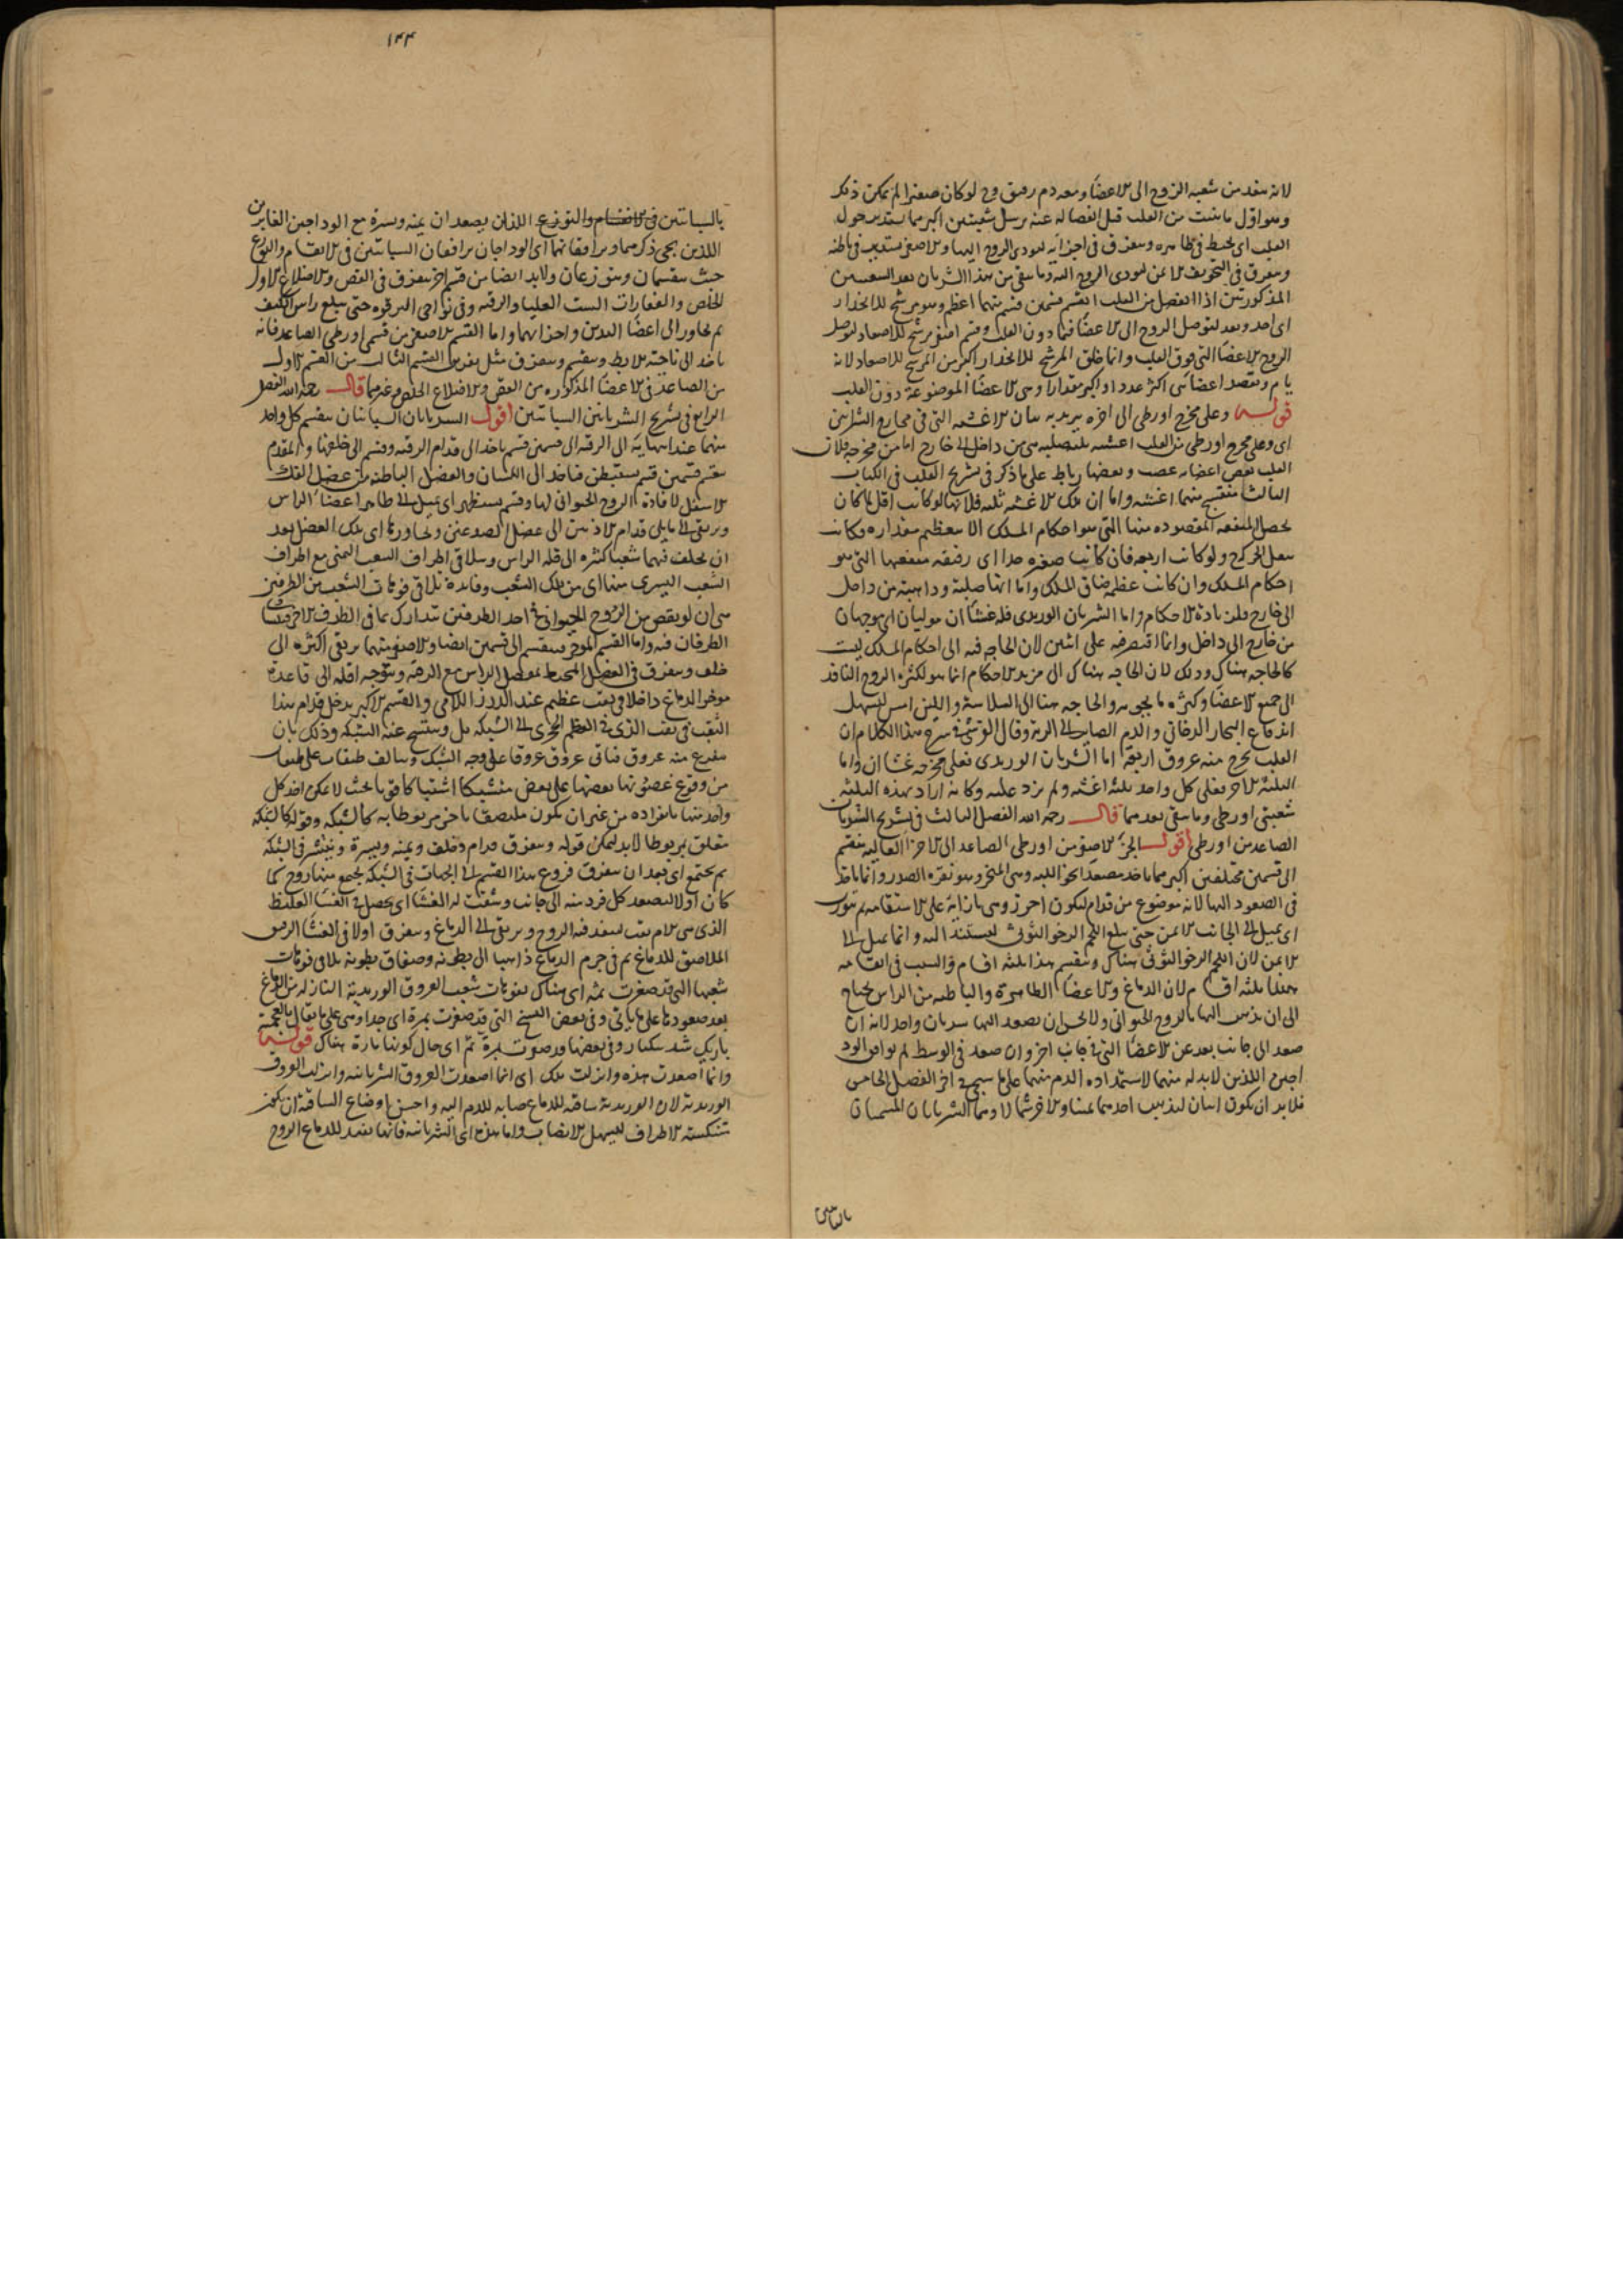 لانه ينفذ من شعبه الروح الى الاعضا ومعه دم رقيق ولو كان صغيرا لم يمكن ذلك
وهو اول ما ينبت من القلب قبل انفصاله عنه يرسل شعبتين اكبرهما يستدير حول
القلب اى يحيط فى ظاهره ويتفرق فى اجزايه ليودى الروح اليها والاصغر يستدير فى باطنه
ويتفرق فى التجويف الايمن ليودى الروح اليه وما يبقى من هذا الشريان بعد الشعبتين
المذكورتين اذا انفصل من القلب انقسم قسمين قسم منهما اعظم وهو مرشح للانحدار
الروح للاعضا التى فوق القلب وانما خلق المرشح للانحدار اكبر من المرشح للاصعاد لانه
يام ويقصد اعضا هى اكثر عددا واكبر مقدارا وهى الاعضا الموضوعة دون القلب
قوله وعلى مخرج اورطى الى اخره يريد به بيان الاغشيه التى فى مخارج الشرايين
اى وعلى مخرج اورطى من القلب اغشيه ثلثه صلبه هى من داخل الى خارج اما من مخرجه فلان
القلب بعض اعضايه عصب وبعضها رباط على ما ذكر فى تشريح القلب فى الكتاب
الثالث فينتسج منهما اغشيه واما ان تلك الاغشيه ثلثه فلانها لو كانت اقل لما كان
يحصل المنفعه المقصوده منها التى هو احكام المسلك الا بعظم مقداره وكانت
ولو كانت اربعه فان كانت صغيره جدا اى رقيقه منفعتها التى هو
احكام المسلك وان كانت عظيمه ضاق المسلك واما انها صلبة وذاهبة من داخل
الى خارج فلزيادة الاحكام واما الشريان الوريدى فله غشاان موليان اى موجهان
من خارج الى داخل وانما اقتصر فيه على اثنين لان الحاجه فيه الى احكام المسلك ليست
كالحاجه هناك وذلك لان الحاجه هناك الى مزيد الاحكام انما هو لكثرة الروح النافذ
الى جميع الاعضا وكثرة ما يجرى والحاجه هنا الى السلاسه واللين امس ليسهل
اندفاع البخار الدخانى والدم الصاير الى الرية وقال القرشى فى شرح هذا الكلام ان
القلب يخرج منه عروق اربعة اما الشريان الوريدى فعلى مخرجه غشاان واما
الثلثة الاخر فعلى كل واحد ثلثة اغشيه ولم يزد عليه وكانه اراد بهذه الثلثه
شعبتى اورطى وما يبقى بعدهما قال رحمه الله الفصل الثالث فى تشريح الشريان
الصاعد من اورطى اقول الجزء الاصغر من اورطى الصاعد الى الاجزا العاليه ينقسم
الى قسمين مختلفين اكبرهما ياخذ مصعدا نحو اللبه وهى المنحر وهو نقرة الصدر وانما ياخذ
فى الصعود اليها لانه موضوع من قدام ليكون احرز وهى بازايه على الاستقامه ثم يتورب
اى يميل الى الجانب الايمن حتى يبلغ اللحم الرخو التوثى ليستند اليه وانما يميل الى
الايمن لان اللحم الرخو التوثى هناك وينقسم هناك ثلثه اقسام والسبب فى انقسامه
هناك ثلثه اقسام لان الدماغ والاعضا الظاهرة والباطنه من الراس يحتاج
الى ان يذهب اليها بالروح الحيوانى ولا يحسن ان يصعد اليها شريان واحد لانه ان
صعد الى جانب بعد عن الاعضا التى فى جانب اخر وان صعد فى الوسط لم يوافق الود
اجين اللذين لا بد له منهما لاستمداده الدم منهما على ما سيجى فى اخر الفصل الخامس
فلا بد ان يكون اثنان ليذهب احدهما يمينا والاخر شمالا وهما الشريانان المسميان
بالسباتيين
١٤٤
بالسباتيين فى الانقسام والتوزع اللذان يصعدان يمنه ويسره مع الوداجين الغايرين
اللذين يجى ذكرهما ويرافقانهما اى الوداجان يرافقان السباتيين فى الانقسام والتوزع
حيث ينقسمان ويتوزعان ولابد ايضا من قسم اخر يتفرق فى القص والاضلاع الاول
الخلص والفقارات الست العليا والرقبه وفى نواحى الترقوه حتى يبلغ راس الكتف
ثم يجاوزه الى اعضا اليدين واجزايهما واما القسم الاصغر من قسمى اورطى الصاعد فانه
ياخذ الى ناحية الابط وينقسم ويتفرق مثل تفرق القسم الثالث من القسم الاول
من الصاعد فى الاعضا المذكوره من القص والاضلاع الخلص وغيرها قال رحمه الله الفصل
الرابع فى تشريح الشريانين السباتيين اقول الشريانان السباتيان ينقسم كل واحد
منهما عند انتهايه الى الرقبه الى قسمين قسم ياخذ الى قدام الرقبه وقسم الى خلفها والمقدم
ينقسم قسمين قسم يستبطن فياخذ الى اللسان والعضل الباطنه من عضل الفك
الاسفل لافادة الروح الحيوانى لها وقسم يستظهر اى يميل الى ظاهر اعضا الراس
ويرتقى الى ما يلى قدام الاذنين الى عضل الصدغين ويجاوزها اى تلك العضل بعد
ان يخلف فيهما شعبا كثيره الى قلة الراس ويتلاقى اطراف الشعب اليمنى مع اطراف
الشعب اليسرى منها اى من تلك الشعب وفايدة تلاقى فوهات الشعب من الطرفين
هى ان لو نقص من الروح الحيوانى فى احد الطرفين تدارك بما فى الطرف الاخر
الطرفان فيه واما القسم الموخر فينقسم الى قسمين ايضا والاصغر منهما يرتقى اكثره الى
خلف ويتفرق فى العضل المحيط بمفصل الراس مع الرقبه ويتوجه اقله الى قاعدة
موخر الدماغ داخلا فى ثقب عظيم عند الدرز اللامى والقسم الاكبر يدخل قدام هذا
الثقب فى الثقب الذى فى العظم الحجرى الى الشبكه بل وينتسج عنه الشبكه وذلك بان
يتفرع منه عروق فى عروق عروقا على وجه الشبك ويتالف طبقات على طبقات
من وقوع غصونها بعضها على بعض متشبكا اشتباكا قويا بحيث لا يمكن اخذ كل
واحد منها بانفراده من غير ان يكون ملتصقا باخر مربوطا به كالشبكه وقوله كالشبكه
متعلق بمربوطا لابد ليمكن قوله ويتفرق قدام وخلف ويمنه ويسرة وينتشر فى الشبكه
ثم يجتمع اى بعد ان يتفرق فروع هذا القسم الى الجهات فى الشبكه يجتمع منها زوج كما
كان اولا ليصعد كل فرد منه الى جانب وينثقب له الغشا اى يحصل فى الغشا الغليظ
الذى هى الام ثقب لينفذ فيه الزوج ويرتقى الى الدماغ ويتفرق اولا فى الغشا الرقيق
الملاصق للدماغ ثم فى جرم الدماغ ذاهبا الى بطونه وصفاق بطونه تلاقى فوهات
شعبها التى قد صغرت ثمه اى هناك بفوهات شعب العروق الوريدية النازله من الدماغ
بعد صعودها على ما ياتى وفى بعض النسخ التى قد صغرت بمرة اى جدا وهى على ما يقال بالعجمية
باريك شد يكبار وفى بعضها قد صوت بارة ثم اى حال كونها بارة هناك قوله
وانما اصعدت هذه وانزلت تلك اى انما اصعدت العروق الشريانيه وانزلت العروق
الوريدية لان الوريدية ساقيه للدماغ صابه للدم اليه واحسن اوضاع الساقيه ان يكون
متنكسه الاطراف ليسهل الانصباب واما هذه اى الشريانيه فانها تنفذ للدماغ الروح